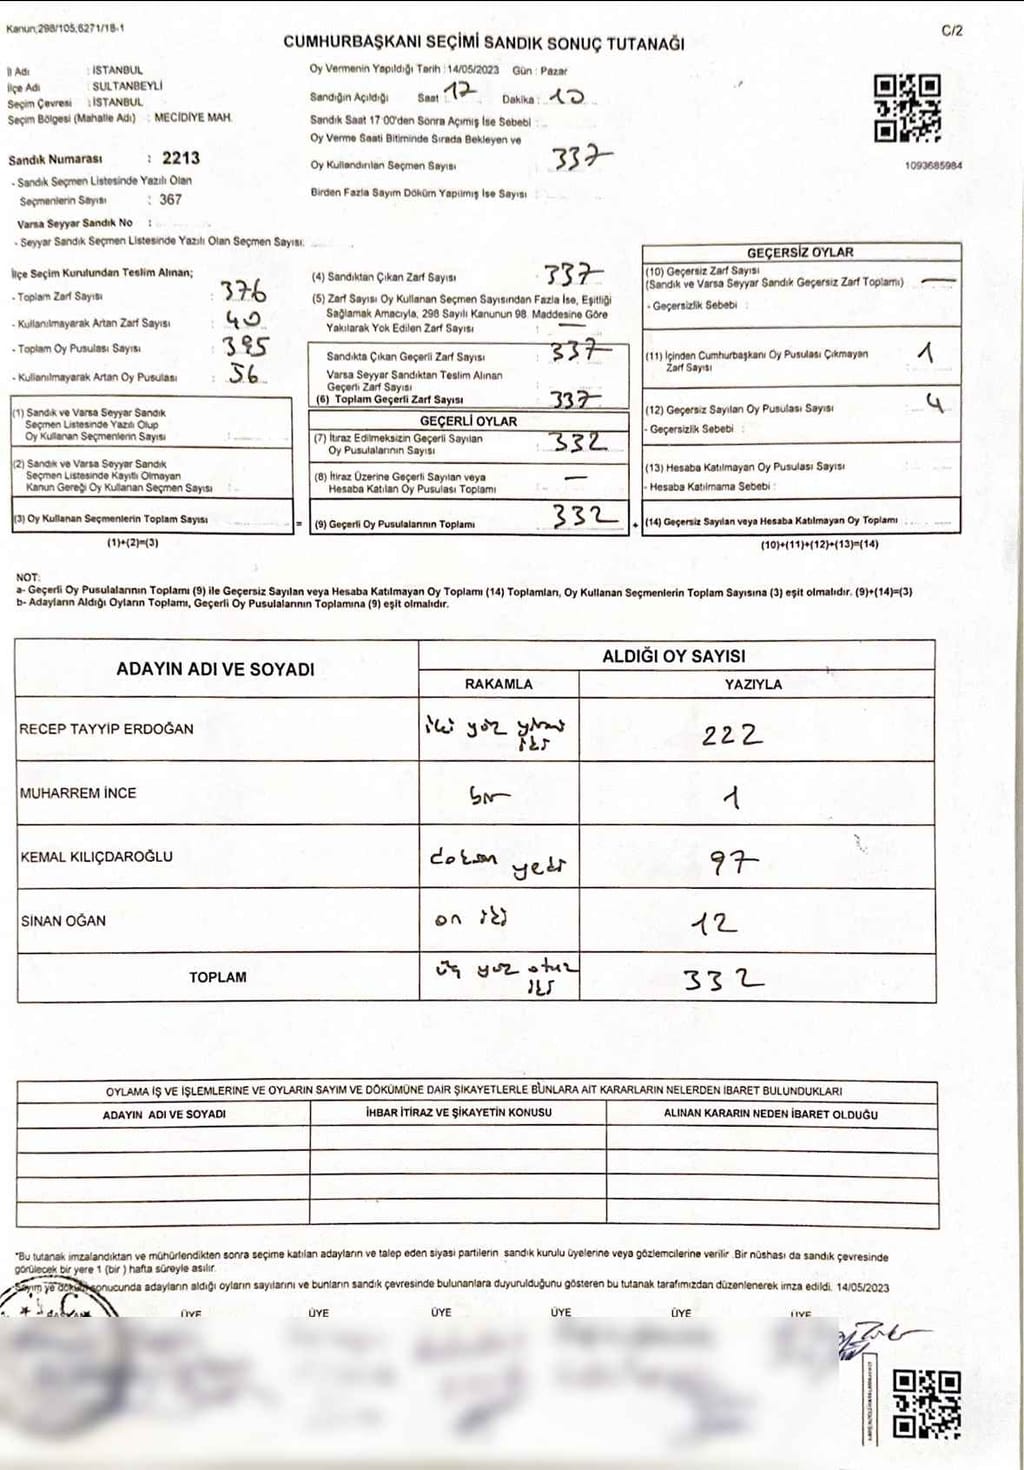 Kanun;298/105,6271/18-1
C/2
CUMHURBAŞKANI SEÇİMİ SANDIK SONUÇ TUTANAĞI
İl Adı : İSTANBUL
İlçe Adı : SULTANBEYLİ
Seçim Çevresi : İSTANBUL
Seçim Bölgesi (Mahalle Adı) : MECİDİYE MAH.
Sandık Numarası : 2213
- Sandık Seçmen Listesinde Yazılı Olan
Seçmenlerin Sayısı : 367
Varsa Seyyar Sandık No :
- Seyyar Sandık Seçmen Listesinde Yazılı Olan Seçmen Sayısı:
Oy Vermenin Yapıldığı Tarih : 14/05/2023 Gün : Pazar
Sandığın Açıldığı Saat : 17 Dakika : 10
Sandık Saat 17:00'den Sonra Açımış İse Sebebi :
Oy Verme Saati Bitiminde Sırada Bekleyen ve
Oy Kullandırılan Seçmen Sayısı : 337
Birden Fazla Sayım Döküm Yapılmış İse Sayısı :
1093685984
İlçe Seçim Kurulundan Teslim Alınan;
- Toplam Zarf Sayısı : 376
- Kullanılmayarak Artan Zarf Sayısı : 40
- Toplam Oy Pusulası Sayısı : 395
- Kullanılmayarak Artan Oy Pusulası : 56
(1) Sandık ve Varsa Seyyar Sandık
Seçmen Listesinde Yazılı Olup
Oy Kullanan Seçmenlerin Sayısı :
(2) Sandık ve Varsa Seyyar Sandık
Seçmen Listesinde Kayıtlı Olmayan
Kanun Gereği Oy Kullanan Seçmen Sayısı :
(3) Oy Kullanan Seçmenlerin Toplam Sayısı
(1)+(2)=(3)
(4) Sandıktan Çıkan Zarf Sayısı : 337
(5) Zarf Sayısı Oy Kullanan Seçmen Sayısından Fazla İse, Eşitliği
Sağlamak Amacıyla, 298 Sayılı Kanunun 98. Maddesine Göre
Yakılarak Yok Edilen Zarf Sayısı : —
Sandıkta Çıkan Geçerli Zarf Sayısı : 337
Varsa Seyyar Sandıktan Teslim Alınan
Geçerli Zarf Sayısı
(6) Toplam Geçerli Zarf Sayısı 337
GEÇERLİ OYLAR
(7) İtiraz Edilmeksizin Geçerli Sayılan
Oy Pusulalarının Sayısı : 332
(8) İtiraz Üzerine Geçerli Sayılan veya
Hesaba Katılan Oy Pusulası Toplamı : —
= (9) Geçerli Oy Pusulalarının Toplamı 332 +
GEÇERSİZ OYLAR
(10) Geçersiz Zarf Sayısı
(Sandık ve Varsa Seyyar Sandık Geçersiz Zarf Toplamı) —
- Geçersizlik Sebebi :
(11) İçinden Cumhurbaşkanı Oy Pusulası Çıkmayan
Zarf Sayısı : 1
(12) Geçersiz Sayılan Oy Pusulası Sayısı 4
- Geçersizlik Sebebi :
(13) Hesaba Katılmayan Oy Pusulası Sayısı
- Hesaba Katılmama Sebebi :
(14) Geçersiz Sayılan veya Hesaba Katılmayan Oy Toplamı
(10)+(11)+(12)+(13)=(14)
NOT:
a- Geçerli Oy Pusulalarının Toplamı (9) ile Geçersiz Sayılan veya Hesaba Katılmayan Oy Toplamı (14) Toplamları, Oy Kullanan Seçmenlerin Toplam Sayısına (3) eşit olmalıdır. (9)+(14)=(3)
b- Adayların Aldığı Oyların Toplamı, Geçerli Oy Pusulalarının Toplamına (9) eşit olmalıdır.
ADAYIN ADI VE SOYADI
ALDIĞI OY SAYISI
RAKAMLA YAZIYLA
RECEP TAYYİP ERDOĞAN iki yüz yirmi iki 222
MUHARREM İNCE bir 1
KEMAL KILIÇDAROĞLU doksan yedi 97
SİNAN OĞAN on iki 12
TOPLAM üç yüz otuz iki 332
OYLAMA İŞ VE İŞLEMLERİNE VE OYLARIN SAYIM VE DÖKÜMÜNE DAİR ŞİKAYETLERLE BUNLARA AİT KARARLARIN NELERDEN İBARET BULUNDUKLARI
ADAYIN ADI VE SOYADI İHBAR İTİRAZ VE ŞİKAYETİN KONUSU ALINAN KARARIN NEDEN İBARET OLDUĞU
*Bu tutanak imzalandıktan ve mühürlendikten sonra seçime katılan adayların ve talep eden siyasi partilerin sandık kurulu üyelerine veya gözlemcilerine verilir. Bir nüshası da sandık çevresinde
görülecek bir yere 1 (bir) hafta süreyle asılır.
Sayım ve döküm sonucunda adayların aldığı oyların sayılarını ve bunların sandık çevresinde bulunanlara duyurulduğunu gösteren bu tutanak tarafımızdan düzenlenerek imza edildi. 14/05/2023
ÜYE ÜYE ÜYE ÜYE ÜYE ÜYE